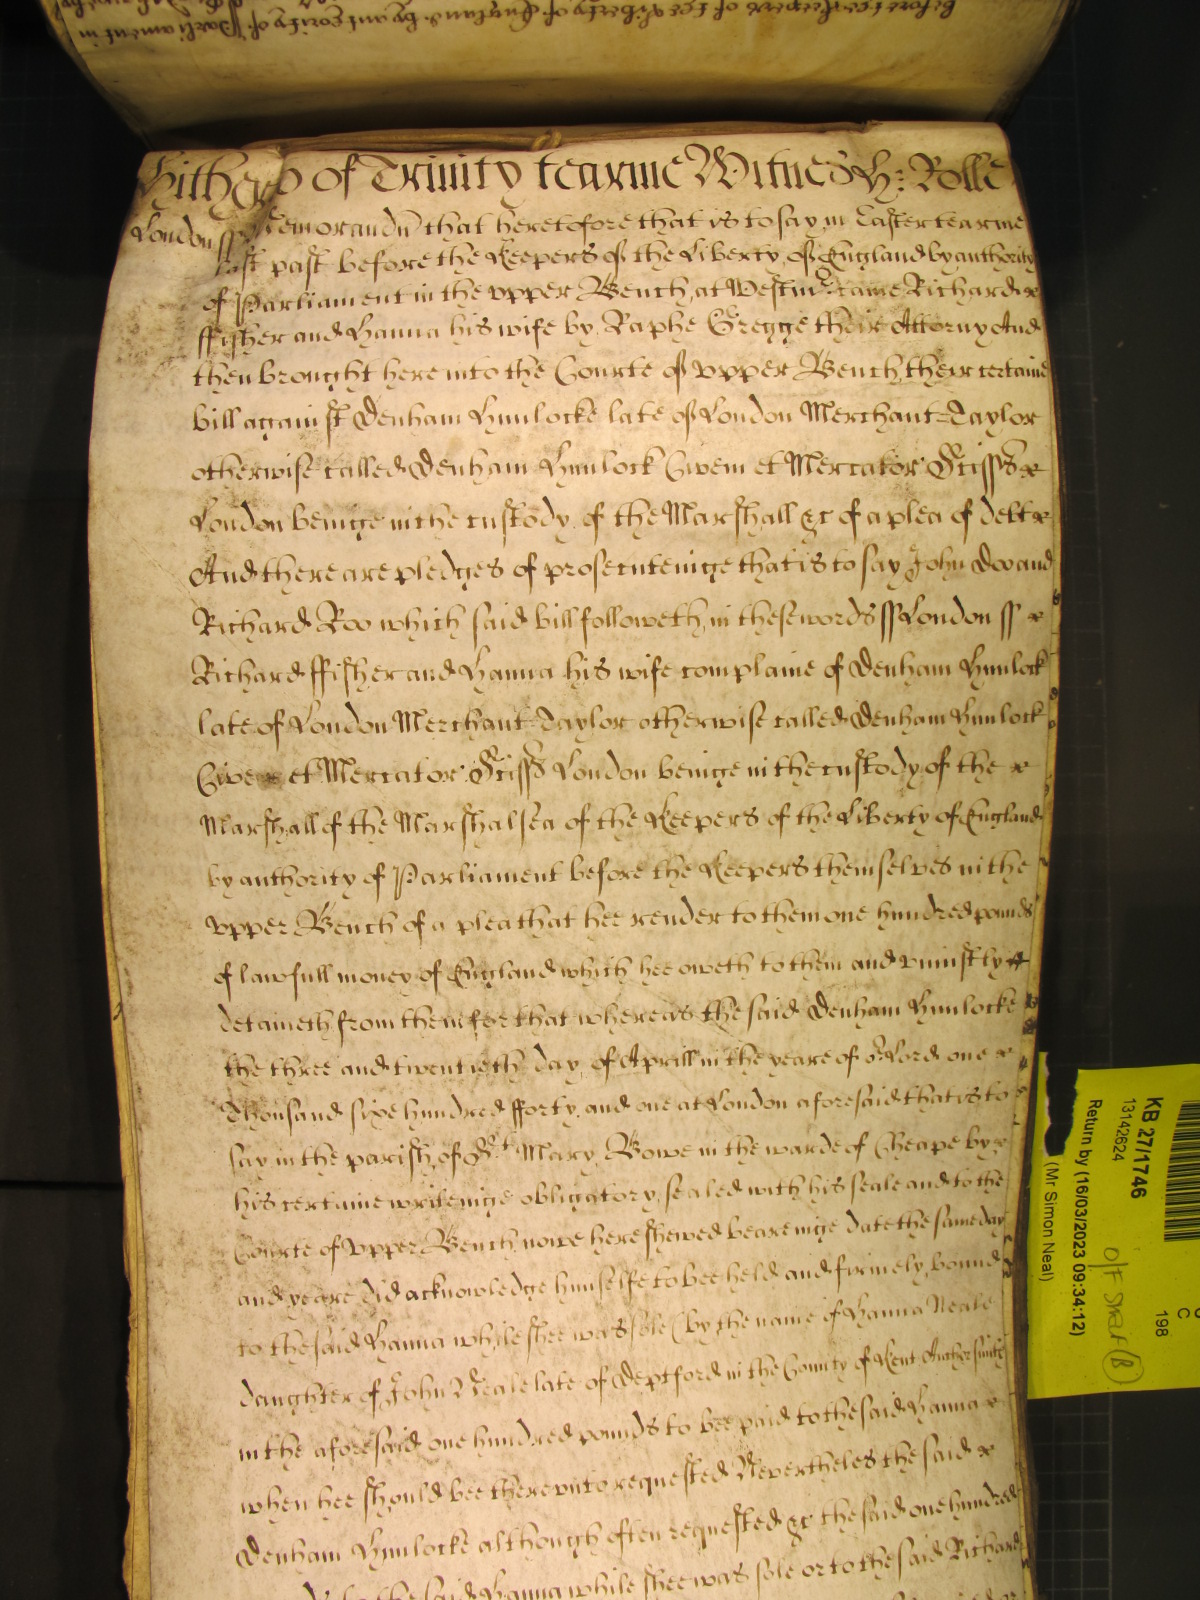 before the Keepers of the liberty of England by authority of Parliament in
of Trinity tearme Witnes H: Rolle
London ss Memorandu that heretofore that is to say in Easter tearme
last past before the Keepers of the Liberty of England by authority
of Parliament in the upper Bench at Westmr came Richard
ffisher and Hanna his wife by Raphe Gregge their Attorny And
then brought here into the Courte of upper Bench their certaine
bill against Denham Hunlocke late of London Merchant=Taylor
otherwise called Denham Hunlock Civem et Mercator Scissor
London beinge in the custody of the Marshall &c of a plea of debt
And there are pledges of prosecuteinge that is to say John Doo and
Richard Roo which said bill followeth in these words ss London ss
Richard ffisher and Hanna his wife complaine of Denham Hunlock
late of London Merchant=Taylor otherwise called Denham Hunlock
Civem et Mercator Scissor London beinge in the custody of the
Marshall of the Marshalsea of the Keepers of the Liberty of England
by authority of Parliament before the Keepers themselves in the
upper Bench of a plea that hee render to them one hundred pounds
of lawfull money of England which hee oweth to them and uniustly
detaineth from them for that whereas the said Denham Hunlocke
the three and twentieth day of Aprill in the yeare of or Lord one
Thousand sixe hundred fforty and one at London aforesaid that is to
say in the parish of St Mary Bowe in the warde of Cheape by
his certaine writeinge obligatory sealed with his seale and to the
Courte of Upper Bench nowe here shewed beareinge date the same day
and yeare did acknowledge himselfe to bee held and firmely bound
to the said Hanna while shee was sole (by the name of Hanna Neale
daughter of John Neale late of Deptford in the County of Kent
in the aforesaid one hundred pounds to bee paid to the said Hanna
when hee should bee thereunto requested Nevertheles the said
Denham Hunlocke although often requested &c the said one hundred
to the said Hanna while shee was sole or to the said Richard
KB 27/1746
13142624
Return by (16/03/2023 09:34:12)
(Mr Simon Neal)
198
C